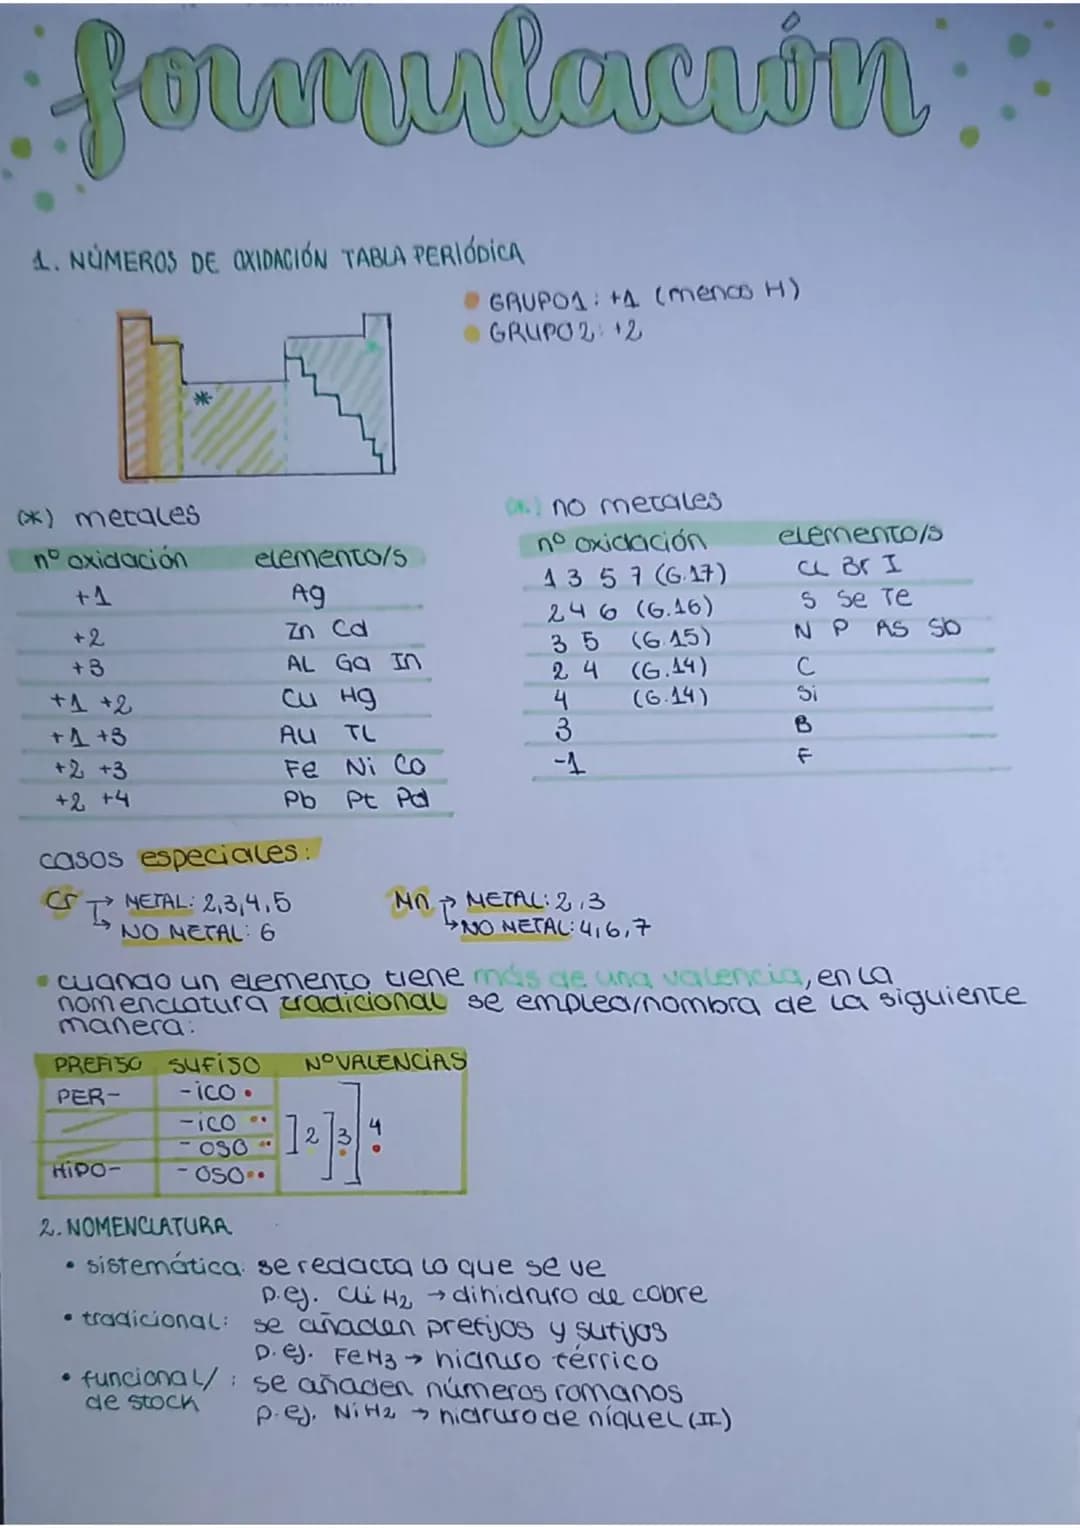 formulación
1. NÚMEROS DE OXIDACIÓN TABLA PERIÓDICA
GRUPO1: +1 (menos H)
GRUPO2: +2
*
(*) metales
nº oxidación elemento/s
+1 Ag
+2 Zn Cd
+3 AL Ga In
+1 +2 Cu Hg
+1 +3 Au TL
+2 +3 Fe Ni Co
+2 +4 Pb Pt Pd
no metales
nº oxidación elemento/s
1 3 5 7 (G.17) CL Br I
2 4 6 (G.16) S Se Te
3 5 (G.15) N P AS Sb
2 4 (G.14) C
4 (G.14) Si
3 B
-1 F
casos especiales:
Cr → METAL: 2,3,4,5
→ NO METAL: 6
Mn → METAL: 2,3
→ NO METAL: 4,6,7
cuando un elemento tiene más de una valencia, en la
nomenclatura tradicional se emplea/nombra de la siguiente
manera:
PREFISO SUFISO Nº VALENCIAS
PER- -ICO
-ICO
-OSO
HIPO- -OSO
] 2 ] 3 ] 4
2. NOMENCLATURA
• sistemática: se redacta lo que se ve
p.ej. CuH2 → dihidruro de cobre
• tradicional: se añaden prefijos y sufijos
p.ej. FeH3 → hidruro férrico
• funcional/ : se añaden números romanos
de stock
p.ej. NiH2 → hidruro de níquel (II)